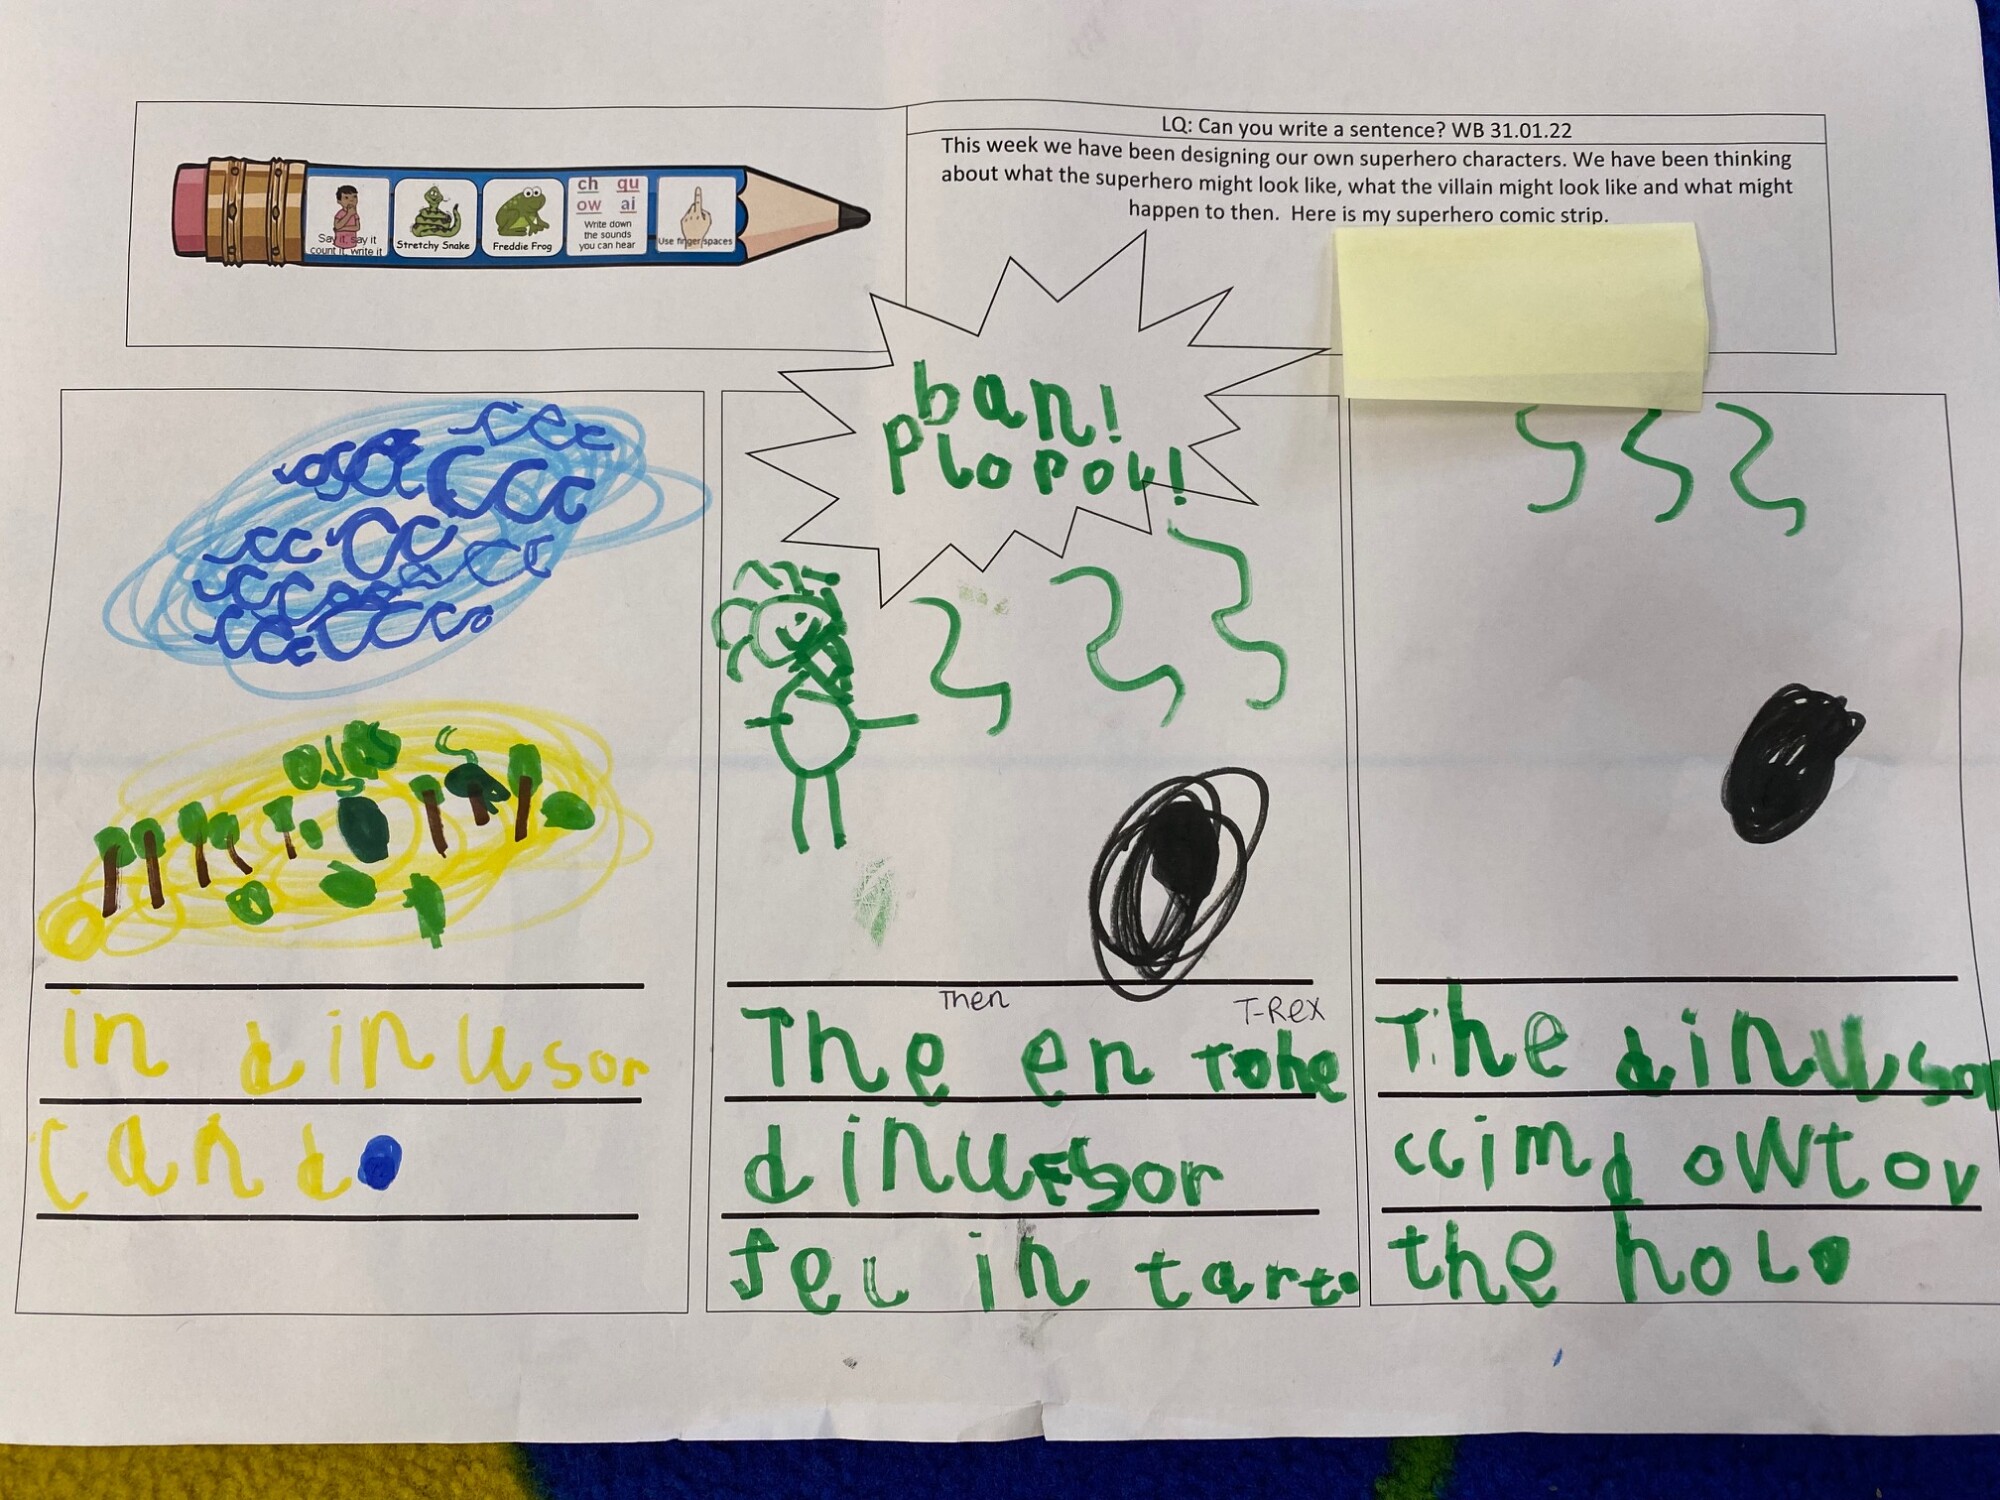 LQ: Can you write a sentence? WB 31.01.22
This week we have been designing our own superhero characters. We have been thinking
about what the superhero might look like, what the villain might look like and what might
happen to then. Here is my superhero comic strip.
Say it, say it
count it, write it
Stretchy Snake
Freddie Frog
ch qu
ow ai
Write down
the sounds
you can hear
Use finger spaces
ban!
Plopow!
in dinusor
cand
Then
T-Rex
The en
dinusor
fel in tart
The dinusor
cimd owt ov
the hol